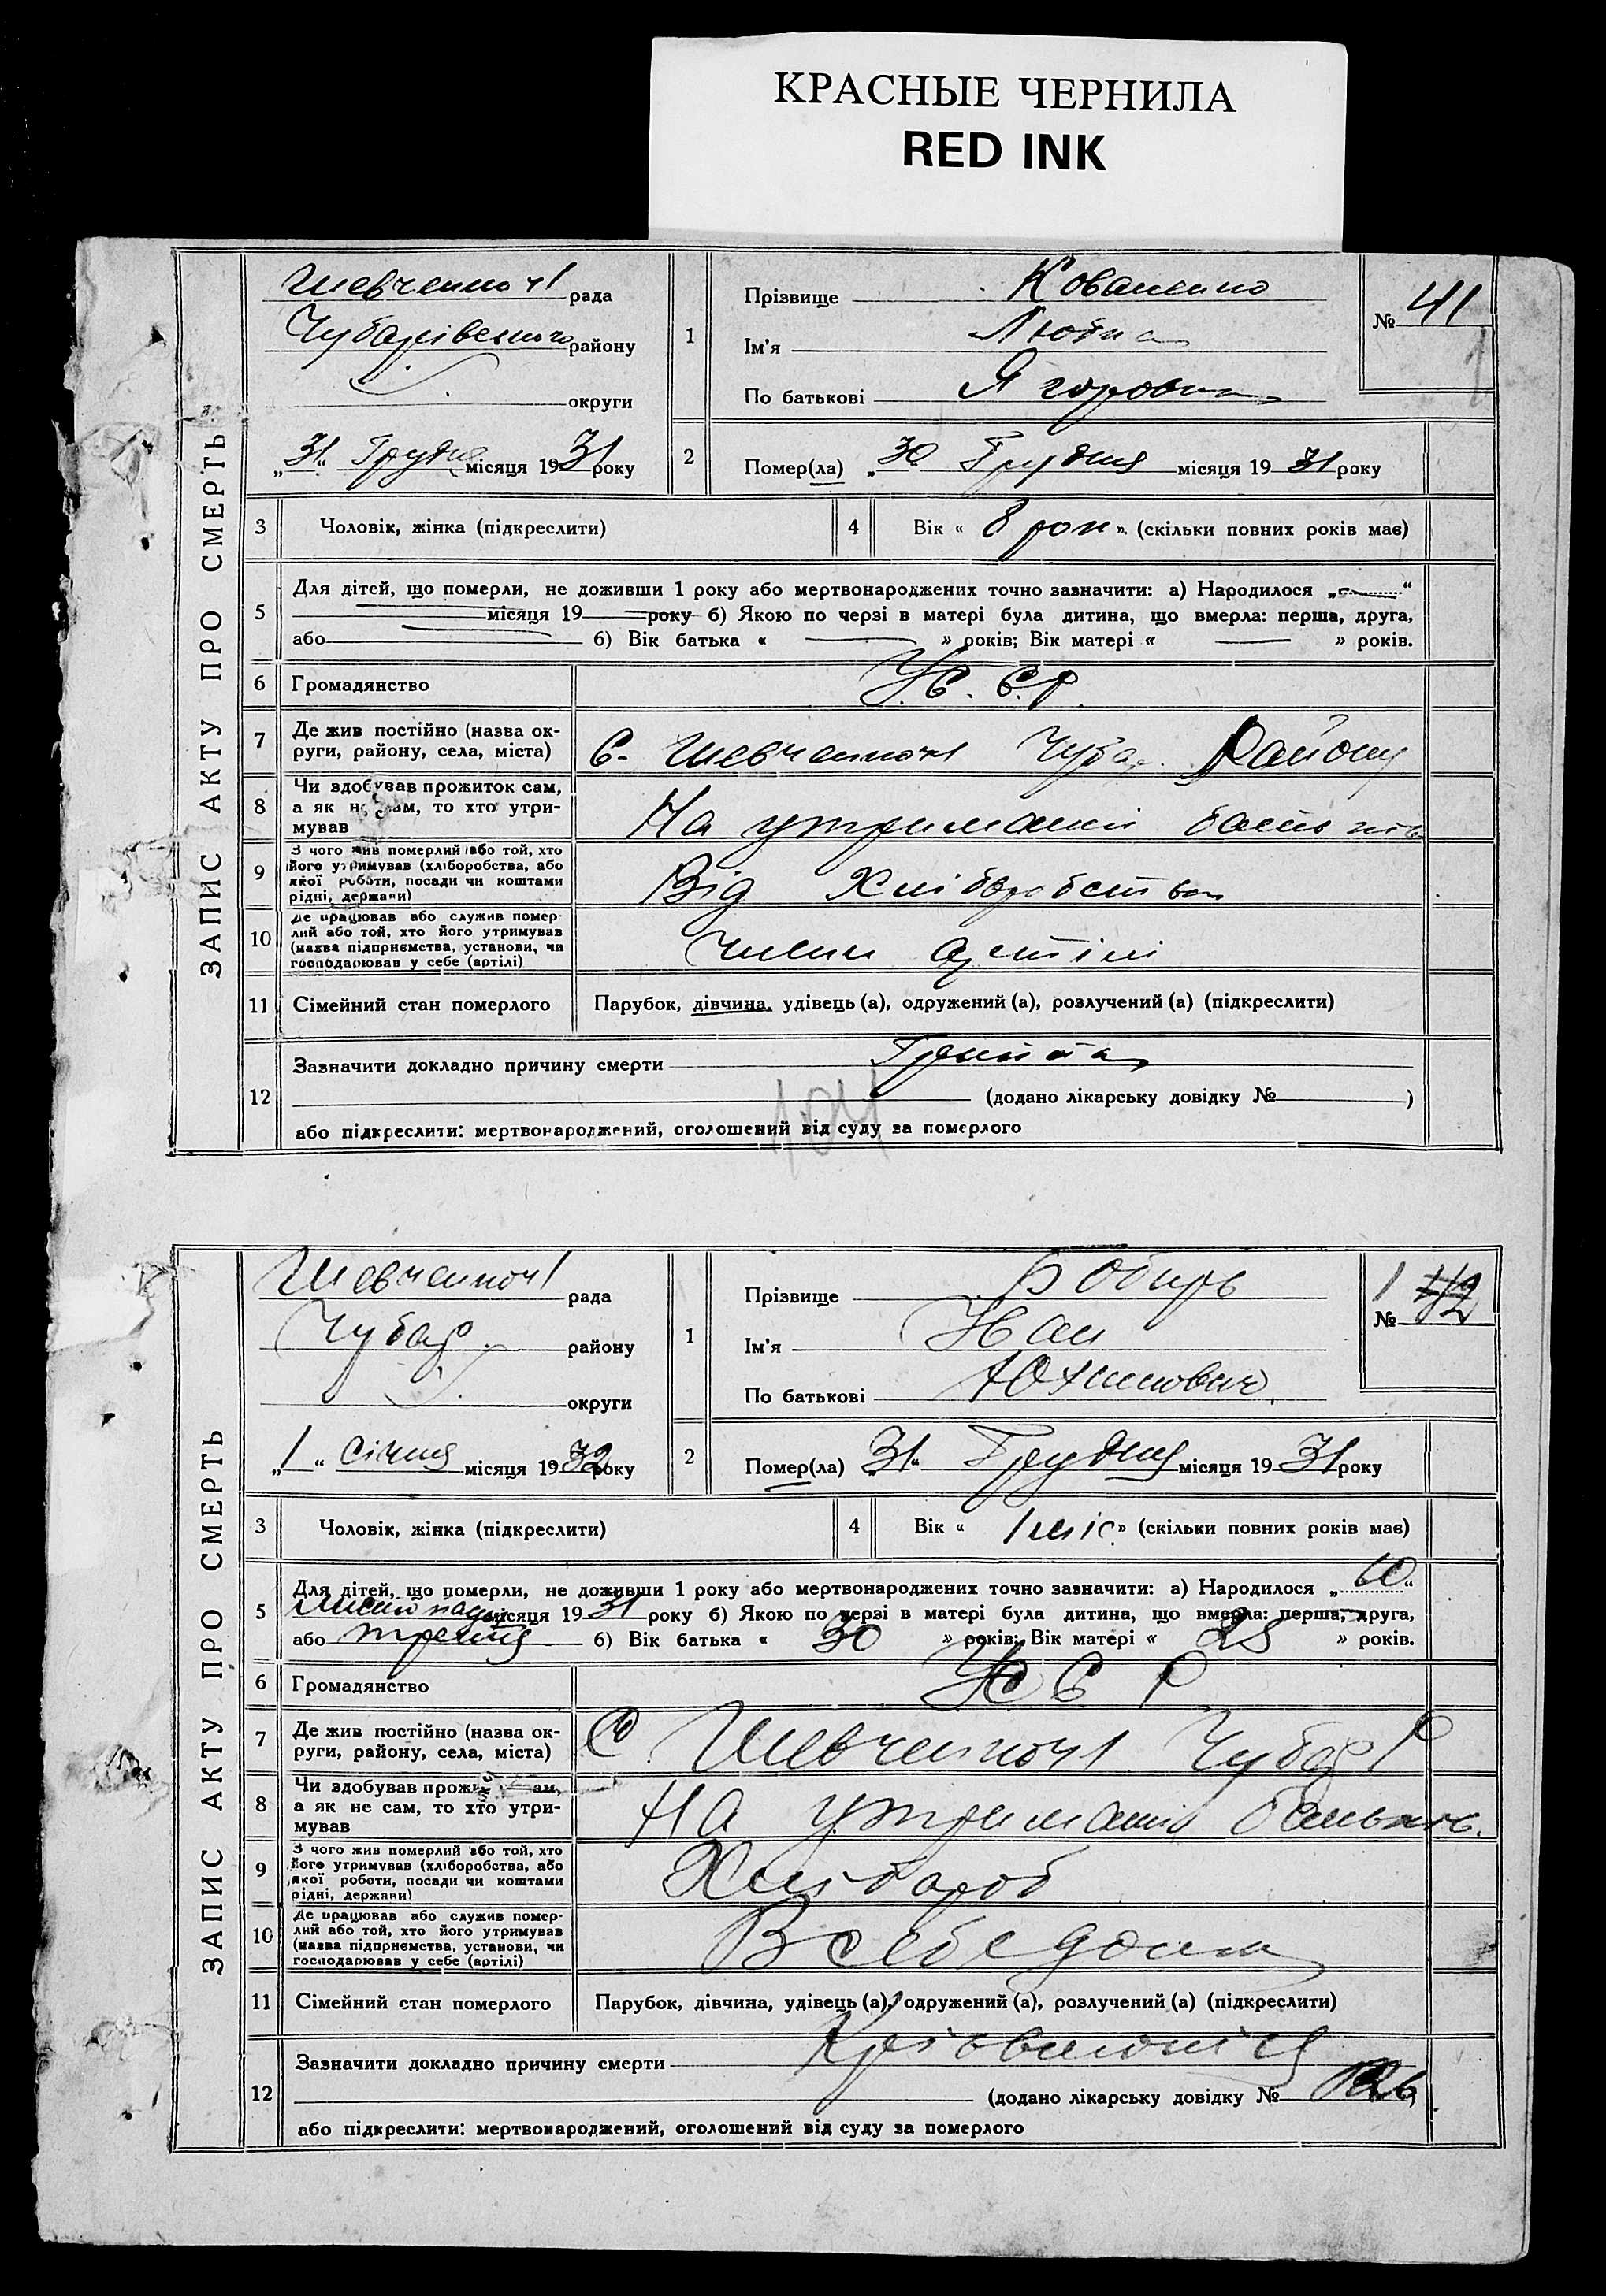 КРАСНЫЕ ЧЕРНИЛА
RED INK
ЗАПИС АКТУ ПРО СМЕРТЬ
рада
Чубарівського району
округи
„31“ Грудня місяця 1931 року
1
Прізвище Коваленко
Ім'я Любка
По батькові Ягоровна
№ 41
2
Помер(ла) „30 Грудня місяця 1931 року
3 Чоловік, жінка (підкреслити)
4 Вік « 8 рок ». (скільки повних років має)
5 Для дітей, що померли, не доживши 1 року або мертвонароджених точно зазначити: а) Народилося „ “
місяця 19 року б) Якою по черзі в матері була дитина, що вмерла: перша, друга,
або б) Вік батька « » років; Вік матері « » років.
6 Громадянство У.С.С.Р.
7 Де жив постійно (назва ок-
руги, району, села, міста)
С. Чубар. Району
8 Чи здобував прожиток сам,
а як не сам, то хто утри-
мував
На утриманні батьків
9 З чого жив померлий або той, хто
його утримував (хліборобства, або
якої роботи, посади чи коштами
рідні, держави)
Від Хліборобства
10 Де працював або служив помер-
лий або той, хто його утримував
(назва підприємства, установи, чи
господарював у себе (артілі)
член артілі
11 Сімейний стан померлого
Парубок, дівчина, удівець (а), одружений (а), розлучений (а) (підкреслити)
12 Зазначити докладно причину смерти
(додано лікарську довідку № )
або підкреслити: мертвонароджений, оголошений від суду за померлого
104
ЗАПИС АКТУ ПРО СМЕРТЬ
рада
Чубар. району
округи
„1“ Січня місяця 1932 року
1
Прізвище Бобирь
Ім'я
По батькові
№ 1 42
2
Помер(ла) „31“ Грудня місяця 1931 року
3 Чоловік, жінка (підкреслити)
4 Вік « 1 міс. » (скільки повних років має)
5 Для дітей, що померли, не доживши 1 року або мертвонароджених точно зазначити: а) Народилося „ “
листопаду місяця 1931 року б) Якою по черзі в матері була дитина, що вмерла: перша, друга,
або третя б) Вік батька « 30 » років; Вік матері « 28 » років.
6 Громадянство УССР
7 Де жив постійно (назва ок-
руги, району, села, міста)
С. Чубар Р
8 Чи здобував прожиток сам,
а як не сам, то хто утри-
мував
На утриманні батьків.
9 З чого жив померлий або той, хто
його утримував (хліборобства, або
якої роботи, посади чи коштами
рідні, держави)
Хлібороб
10 Де працював або служив помер-
лий або той, хто його утримував
(назва підприємства, установи, чи
господарював у себе (артілі)
В себе дома
11 Сімейний стан померлого
Парубок, дівчина, удівець (а), одружений (а), розлучений (а) (підкреслити)
12 Зазначити докладно причину смерти
(додано лікарську довідку № )
або підкреслити: мертвонароджений, оголошений від суду за померлого